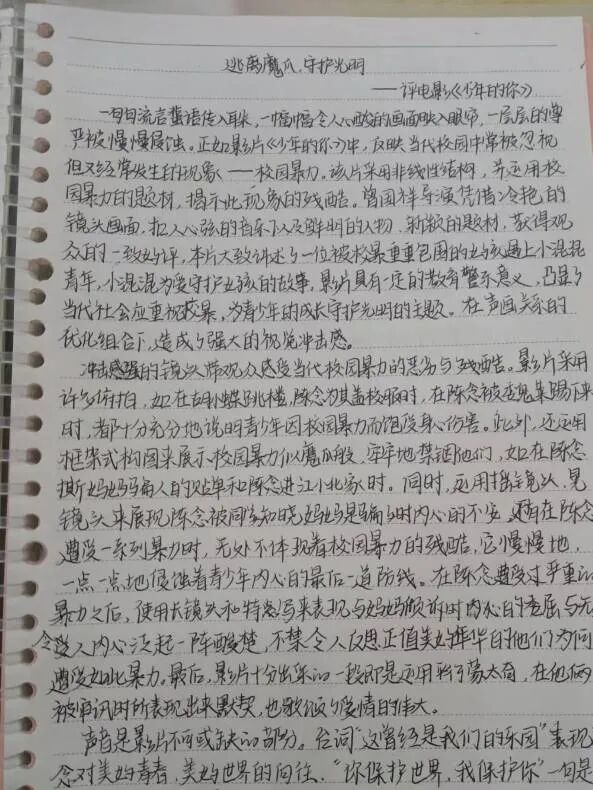 逃离魔爪，守护光明
——评电影《少年的你》
一句句流言蜚语传入耳朵，一幅幅令人心酸的画面映入眼帘，一层层的尊
严被慢慢侵蚀。正如影片《少年的你》中，反映当代校园中常被忽视
但又经常发生的现象——校园暴力。该片采用非线性结构，并运用校
园暴力的题材，揭示此现象的残酷。曾国祥导演凭借冷艳的
镜头画面，扣人心弦的音乐以及鲜明的人物，新颖的题材，获得观
众的一致好评，本片大致讲述了一位被校暴重重包围的女孩遇上小混混
青年，小混混为爱守护女孩的故事。影片具有一定的教育警示意义，凸显了
当代社会应重视校暴，为青少年的成长守护光明的主题。在声画关系的
优化组合下，造成了强大的视觉冲击感。
冲击感强的镜头带观众感受当代校园暴力的恶劣与残酷。影片采用
许多俯拍，如在胡小蝶跳楼，陈念为其盖校服时，在陈念被踢下来
时，都十分充分地说明青少年因校园暴力而饱受身心伤害。此外，还运用
框架式构图来展示校园暴力似魔爪般，牢牢地禁锢他们，如在陈念
撕妈妈骗人的贴单和陈念进江小北家时。同时，运用摇镜头，晃
镜头来展现陈念被同学知晓妈妈是骗子时内心的不安，还有在陈念
遭受一系列暴力时，无处不体现着校园暴力的残酷，它慢慢地，
一点一点地侵蚀着青少年内心的最后一道防线。在陈念遭受过严重的
暴力之后，使用长镜头和特写来表现与妈妈倾诉时内心的委屈与无
令人内心泛起一阵酸楚，不禁令人反思正值美好年华的他们为何
遭受如此暴力。最后，影片十分出采的一段即是运用平行蒙太奇，在他俩
被审讯时所表现出来默契，也歌颂了爱情的伟大。
声音是影片不可或缺的部分。台词“这曾经是我们的乐园”表现
念对美好青春，美好世界的向往。“你保护世界，我保护你”一句是